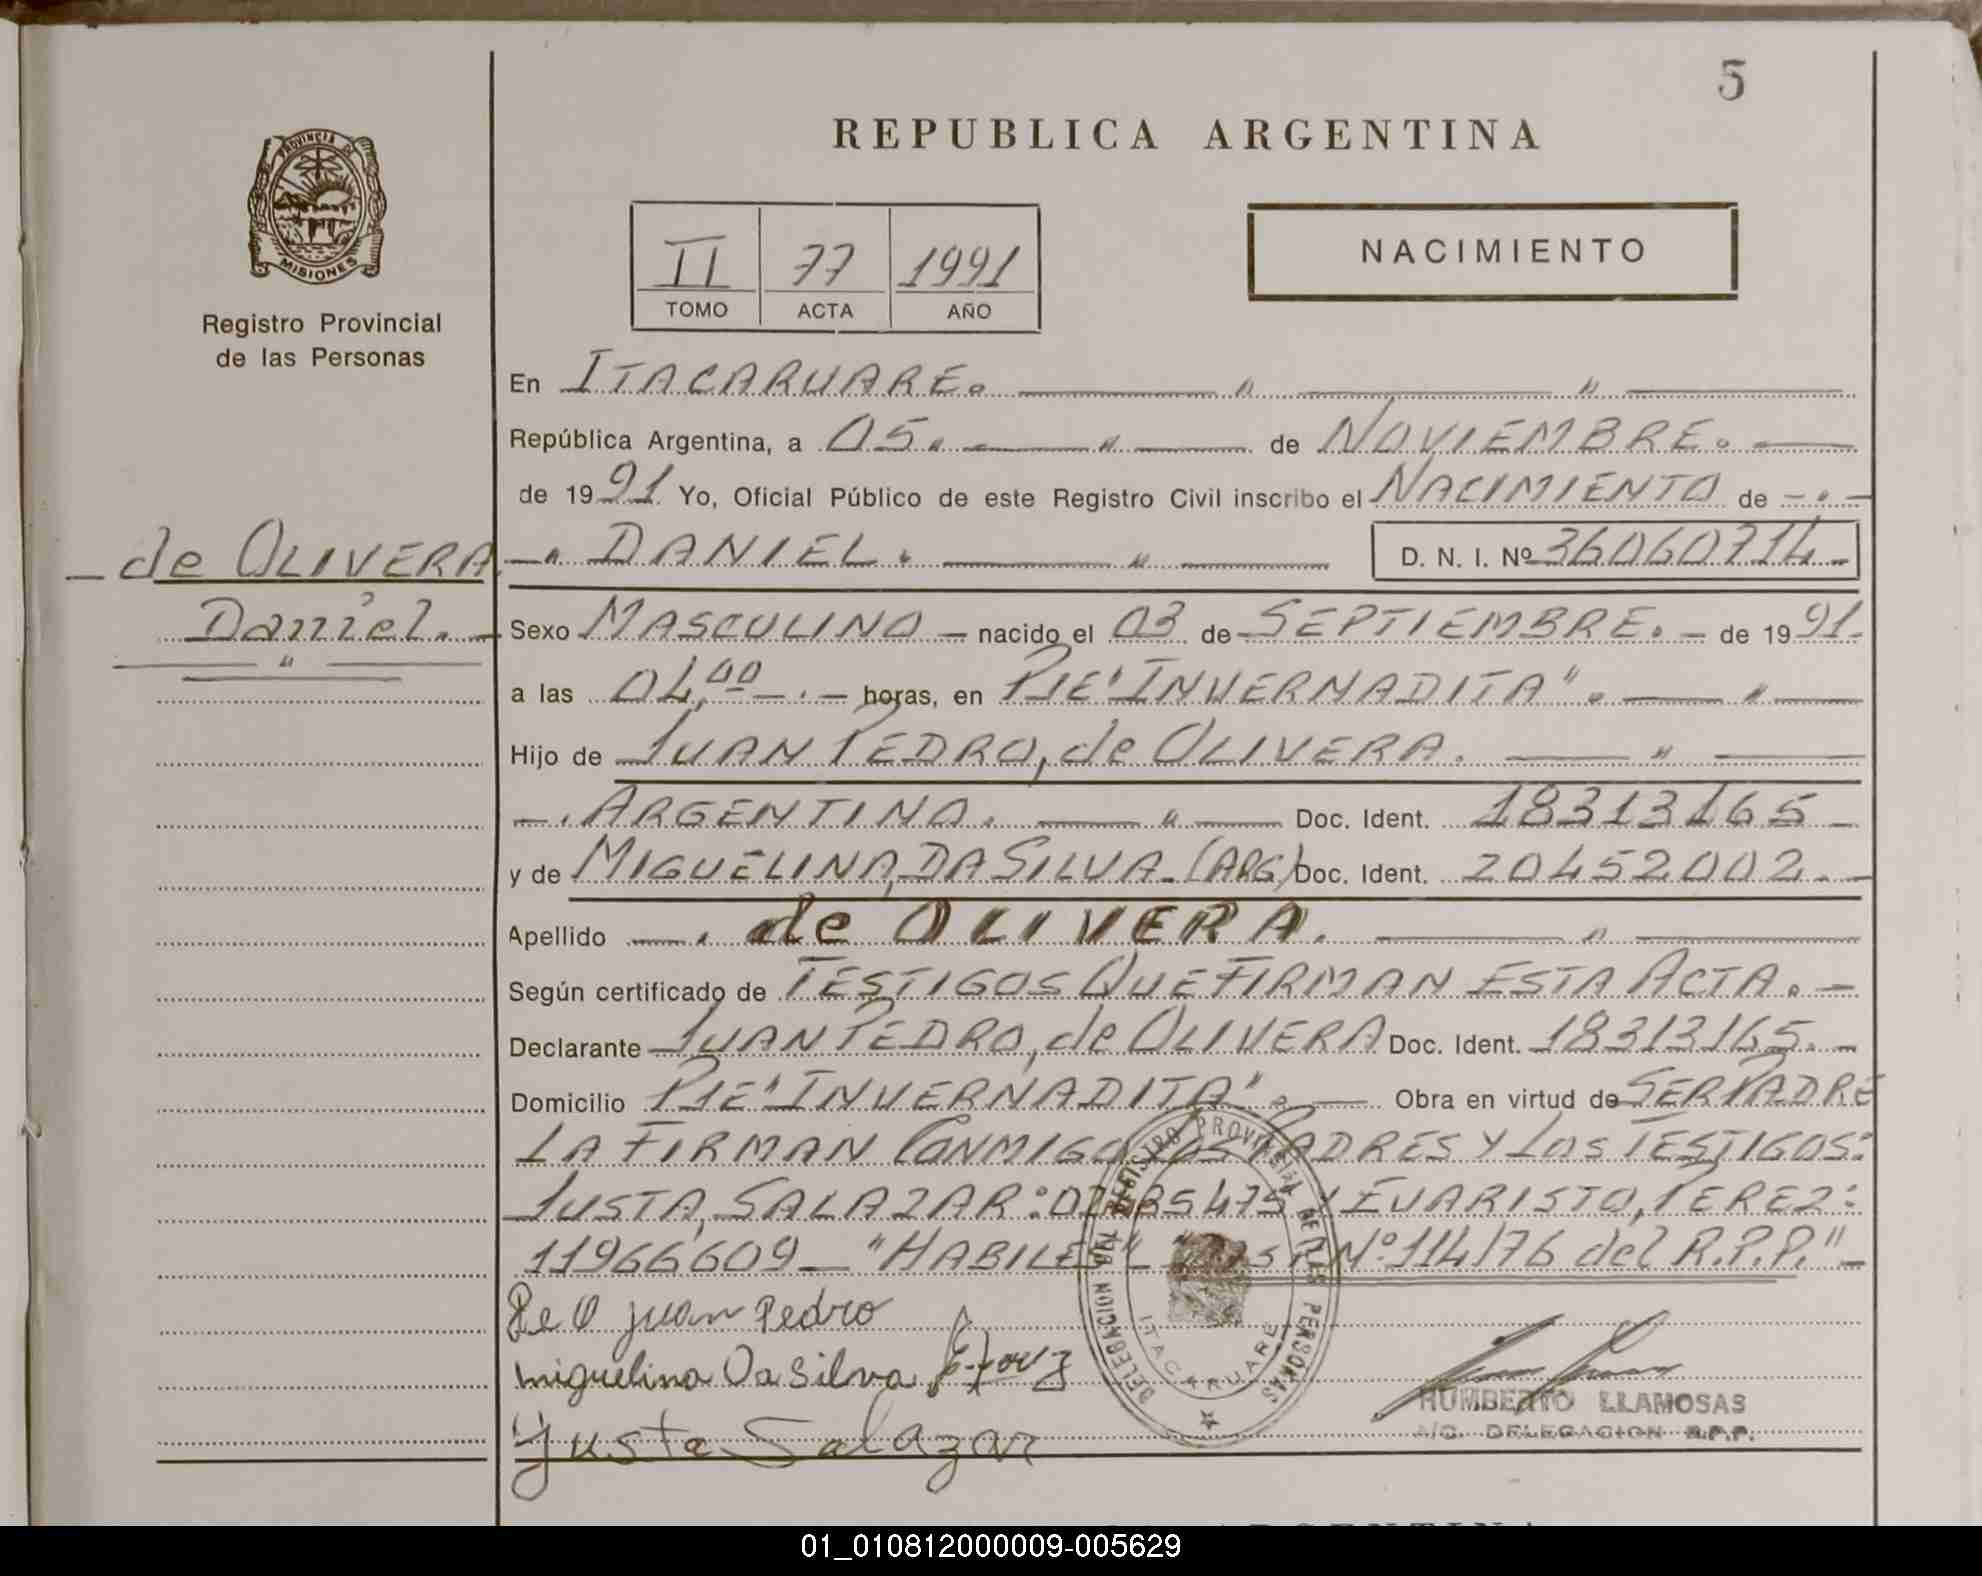 5
REPUBLICA ARGENTINA
PROVINCIA DE
MISIONES
Registro Provincial
de las Personas
II 77 1991
TOMO ACTA AÑO
NACIMIENTO
En ITACARUARE.
República Argentina, a 05. de NOVIEMBRE.
de 1991 Yo, Oficial Público de este Registro Civil inscribo el NACIMIENTO de
de OLIVERA
Daniel.
DANIEL. D. N. I. Nº 36060714
Sexo MASCULINO nacido el 03 de SEPTIEMBRE. de 1991
a las 04,00 horas, en PJE "INVERNADITA".
Hijo de JUAN PEDRO, de OLIVERA.
ARGENTINO. Doc. Ident. 18313165
y de MIGUELINA, DA SILVA. (ARG) Doc. Ident. 20452002.
Apellido de OLIVERA.
Según certificado de TESTIGOS QUE FIRMAN ESTA ACTA.
Declarante JUAN PEDRO, de OLIVERA Doc. Ident. 18313165.
Domicilio PJE "INVERNADITA". Obra en virtud de SER PADRE
LA FIRMAN CONMIGO LOS PADRES Y LOS TESTIGOS:
JUSTA, SALAZAR: Y EVARISTO, PEREZ:
11966609 "HABILES" Nº 114/76 del R.P.P."
De O juan Pedro
Miguelina Da Silva
Justa Salazar
DELEGACION DEL REGISTRO PROVINCIAL DE LAS PERSONAS
ITACARUARE
HUMBERTO LLAMOSAS
A/C. DELEGACION R.P.P.
01_010812000009-005629